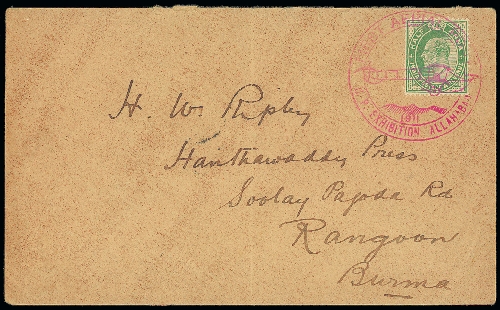 FIRST AERIAL
HALF ANNA
1911
U.P. EXHIBITION ALLAHABAD
H. W. Ripley
Hanthawaddy Press
Soolay Pagoda Rd
Rangoon
Burma